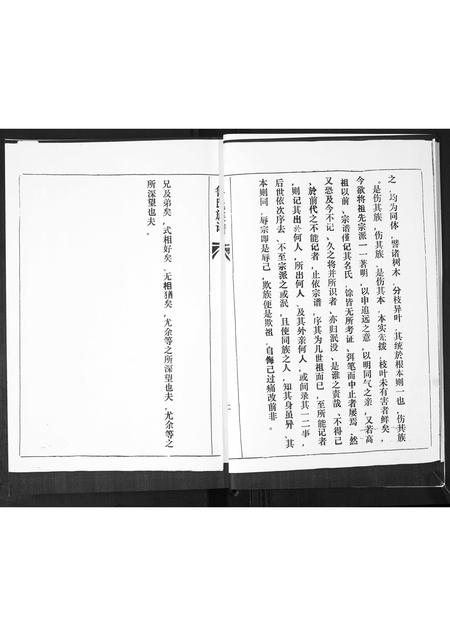 之，均为同体，譬诸树木，分枝异叶，其统於根本则一也，伤其族
是伤其族，伤其族，是伤其本，本实先拨，枝叶未有害者鲜矣，
今欲将祖先宗派一一著明，以申追远之意，以明同气之亲，又若高
祖以前，宗谱仅记其名氏，馀皆无所考证，弭笔而中止者屡焉，然
又恐及今不记，久之将并所识者，亦归泯没，是谁之责哉，不得已
於前代之不能记者，止依宗谱，序其为几世祖而已，至所能记者
则记其出於何人，所出何人，及其外亲何人，或间录其一二事，
后世依次序去，不至宗派之或泯，且使同族之人，知其身虽异，其
本则同，辱宗即是辱己，欺族便是欺祖，自悔己过痛改前非。
氏族谱
兄及弟矣，式相好矣，无相猶矣，尤余等之所深望也夫，尤余等之
所深望也夫。